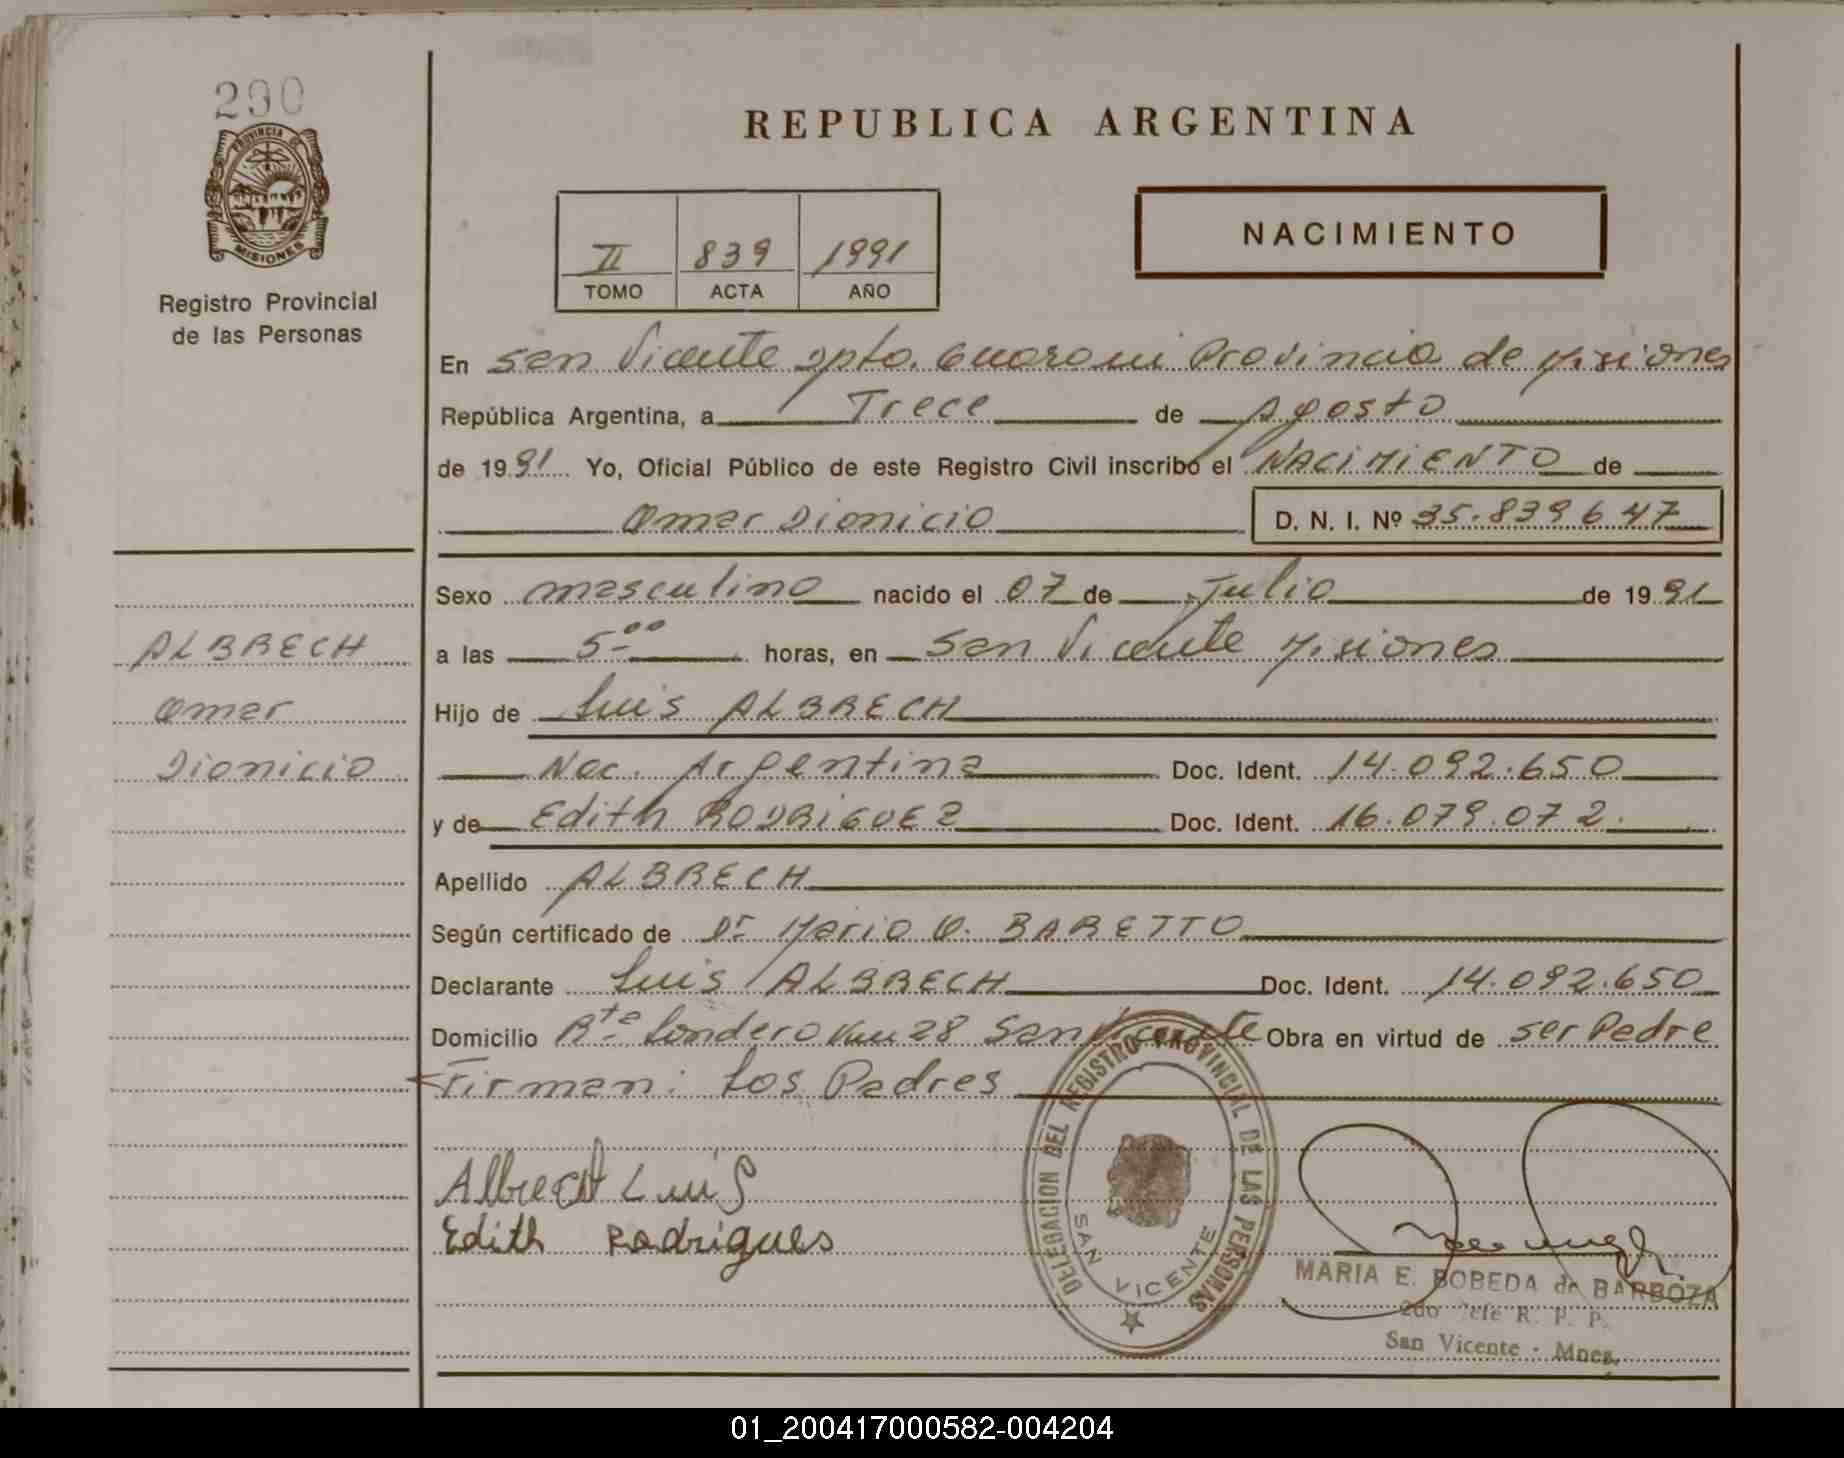 290
PROVINCIA DE
MISIONES
Registro Provincial
de las Personas
REPUBLICA ARGENTINA
NACIMIENTO
II 839 1991
TOMO ACTA AÑO
En San Vicente Dpto. Guarani Provincia de Misiones
República Argentina, a Trece de Agosto
de 1991 Yo, Oficial Público de este Registro Civil inscribo el NACIMIENTO de
Omar Dionicio D. N. I. Nº 35.839647
Sexo masculino nacido el 07 de Julio de 1991
ALBRECH
a las 5 00 horas, en San Vicente Misiones
Omar
Hijo de Luis ALBRECH
Dionicio
Nac. Argentina Doc. Ident. 14.092.650
y de Edith RODRIGUEZ Doc. Ident. 16.079.072.
Apellido ALBRECH
Según certificado de Dr Mario O. BARETTO
Declarante Luis ALBRECH Doc. Ident. 14.092.650
Domicilio Londero Km 28 San Vicente Obra en virtud de ser Padre
Firman: Los Padres
Albrecht Luis
Edith Rodrigues
DELEGACION DEL REGISTRO PROVINCIAL DE LAS PERSONAS
SAN VICENTE
MARIA E. BOBEDA de BARBOZA
2do Jefe R. P. P.
San Vicente - Mnes.
01_200417000582-004204